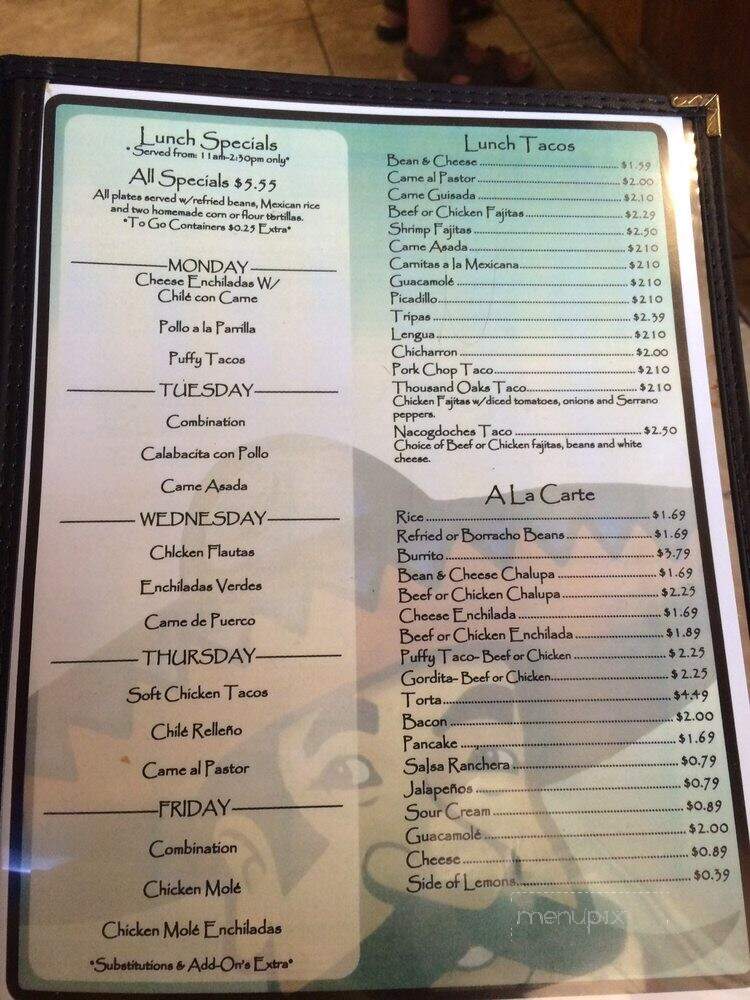 Lunch Specials
*Served from: 11am-2:30pm only*
All Specials $5.55
All plates served w/refried beans, Mexican rice
and two homemade corn or flour tortillas.
*To Go Containers $0.25 Extra*
MONDAY
Cheese Enchiladas W/
Chilé con Carne
Pollo a la Parrilla
Puffy Tacos
TUESDAY
Combination
Calabacita con Pollo
Carne Asada
WEDNESDAY
Chicken Flautas
Enchiladas Verdes
Carne de Puerco
THURSDAY
Soft Chicken Tacos
Chilé Relleño
Carne al Pastor
FRIDAY
Combination
Chicken Molé
Chicken Molé Enchiladas
*Substitutions & Add-On's Extra*
Lunch Tacos
Bean & Cheese $1.59
Carne al Pastor $2.00
Carne Guisada $2.10
Beef or Chicken Fajitas $2.29
Shrimp Fajitas $2.50
Carne Asada $210
Carnitas a la Mexicana $210
Guacamolé $210
Picadillo $210
Tripas $2.39
Lengua $210
Chicharron $2.00
Pork Chop Taco $210
Thousand Oaks Taco $210
Chicken Fajitas w/diced tomatoes, onions and Serrano
peppers.
Nacogdoches Taco $2.50
Choice of Beef or Chicken fajitas, beans and white
cheese.
A La Carte
Rice $1.69
Refried or Borracho Beans $1.69
Burrito $3.79
Bean & Cheese Chalupa $1.69
Beef or Chicken Chalupa $2.25
Cheese Enchilada $1.69
Beef or Chicken Enchilada $1.89
Puffy Taco- Beef or Chicken $2.25
Gordita- Beef or Chicken $2.25
Torta $4.49
Bacon $2.00
Pancake $1.69
Salsa Ranchera $0.79
Jalapeños $0.79
Sour Cream $0.89
Guacamolé $2.00
Cheese $0.89
Side of Lemons $0.39
menupix